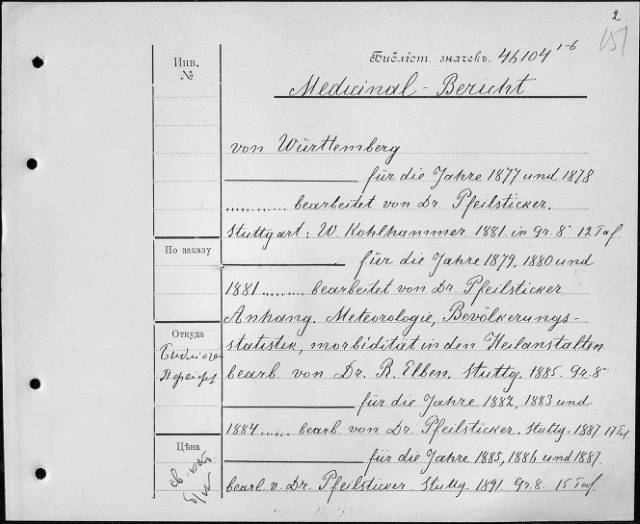 2
151
Инв.
№
Библіот. значекъ. 46104 1-6
Medicinal-Bericht
von Württemberg
für die Jahre 1877 und 1878
.......... bearbeitet von Dr. Pfeilsticker.
Stuttgart: W. Kohlhammer 1881. in gr. 8° 12 Taf.
По заказу
für die Jahre 1879, 1880 und
1881 ......... bearbeitet von Dr. Pfeilsticker
Anhang. Meteorologie, Bevölkerungs-
Откуда
statistik, morbidität in den Heilanstalten
bearb. von Dr. R. Elben. Stuttg. 1885. Gr. 8
für die Jahre 1882, 1883 und
1884 ...... bearb. von Dr. Pfeilsticker. Stuttg. 1887 17 Taf.
Цѣна
für die Jahre 1885, 1886 und 1887.
bearb. v. Dr. Pfeilsticker Stuttg. 1891. Gr. 8. 15 Taf.